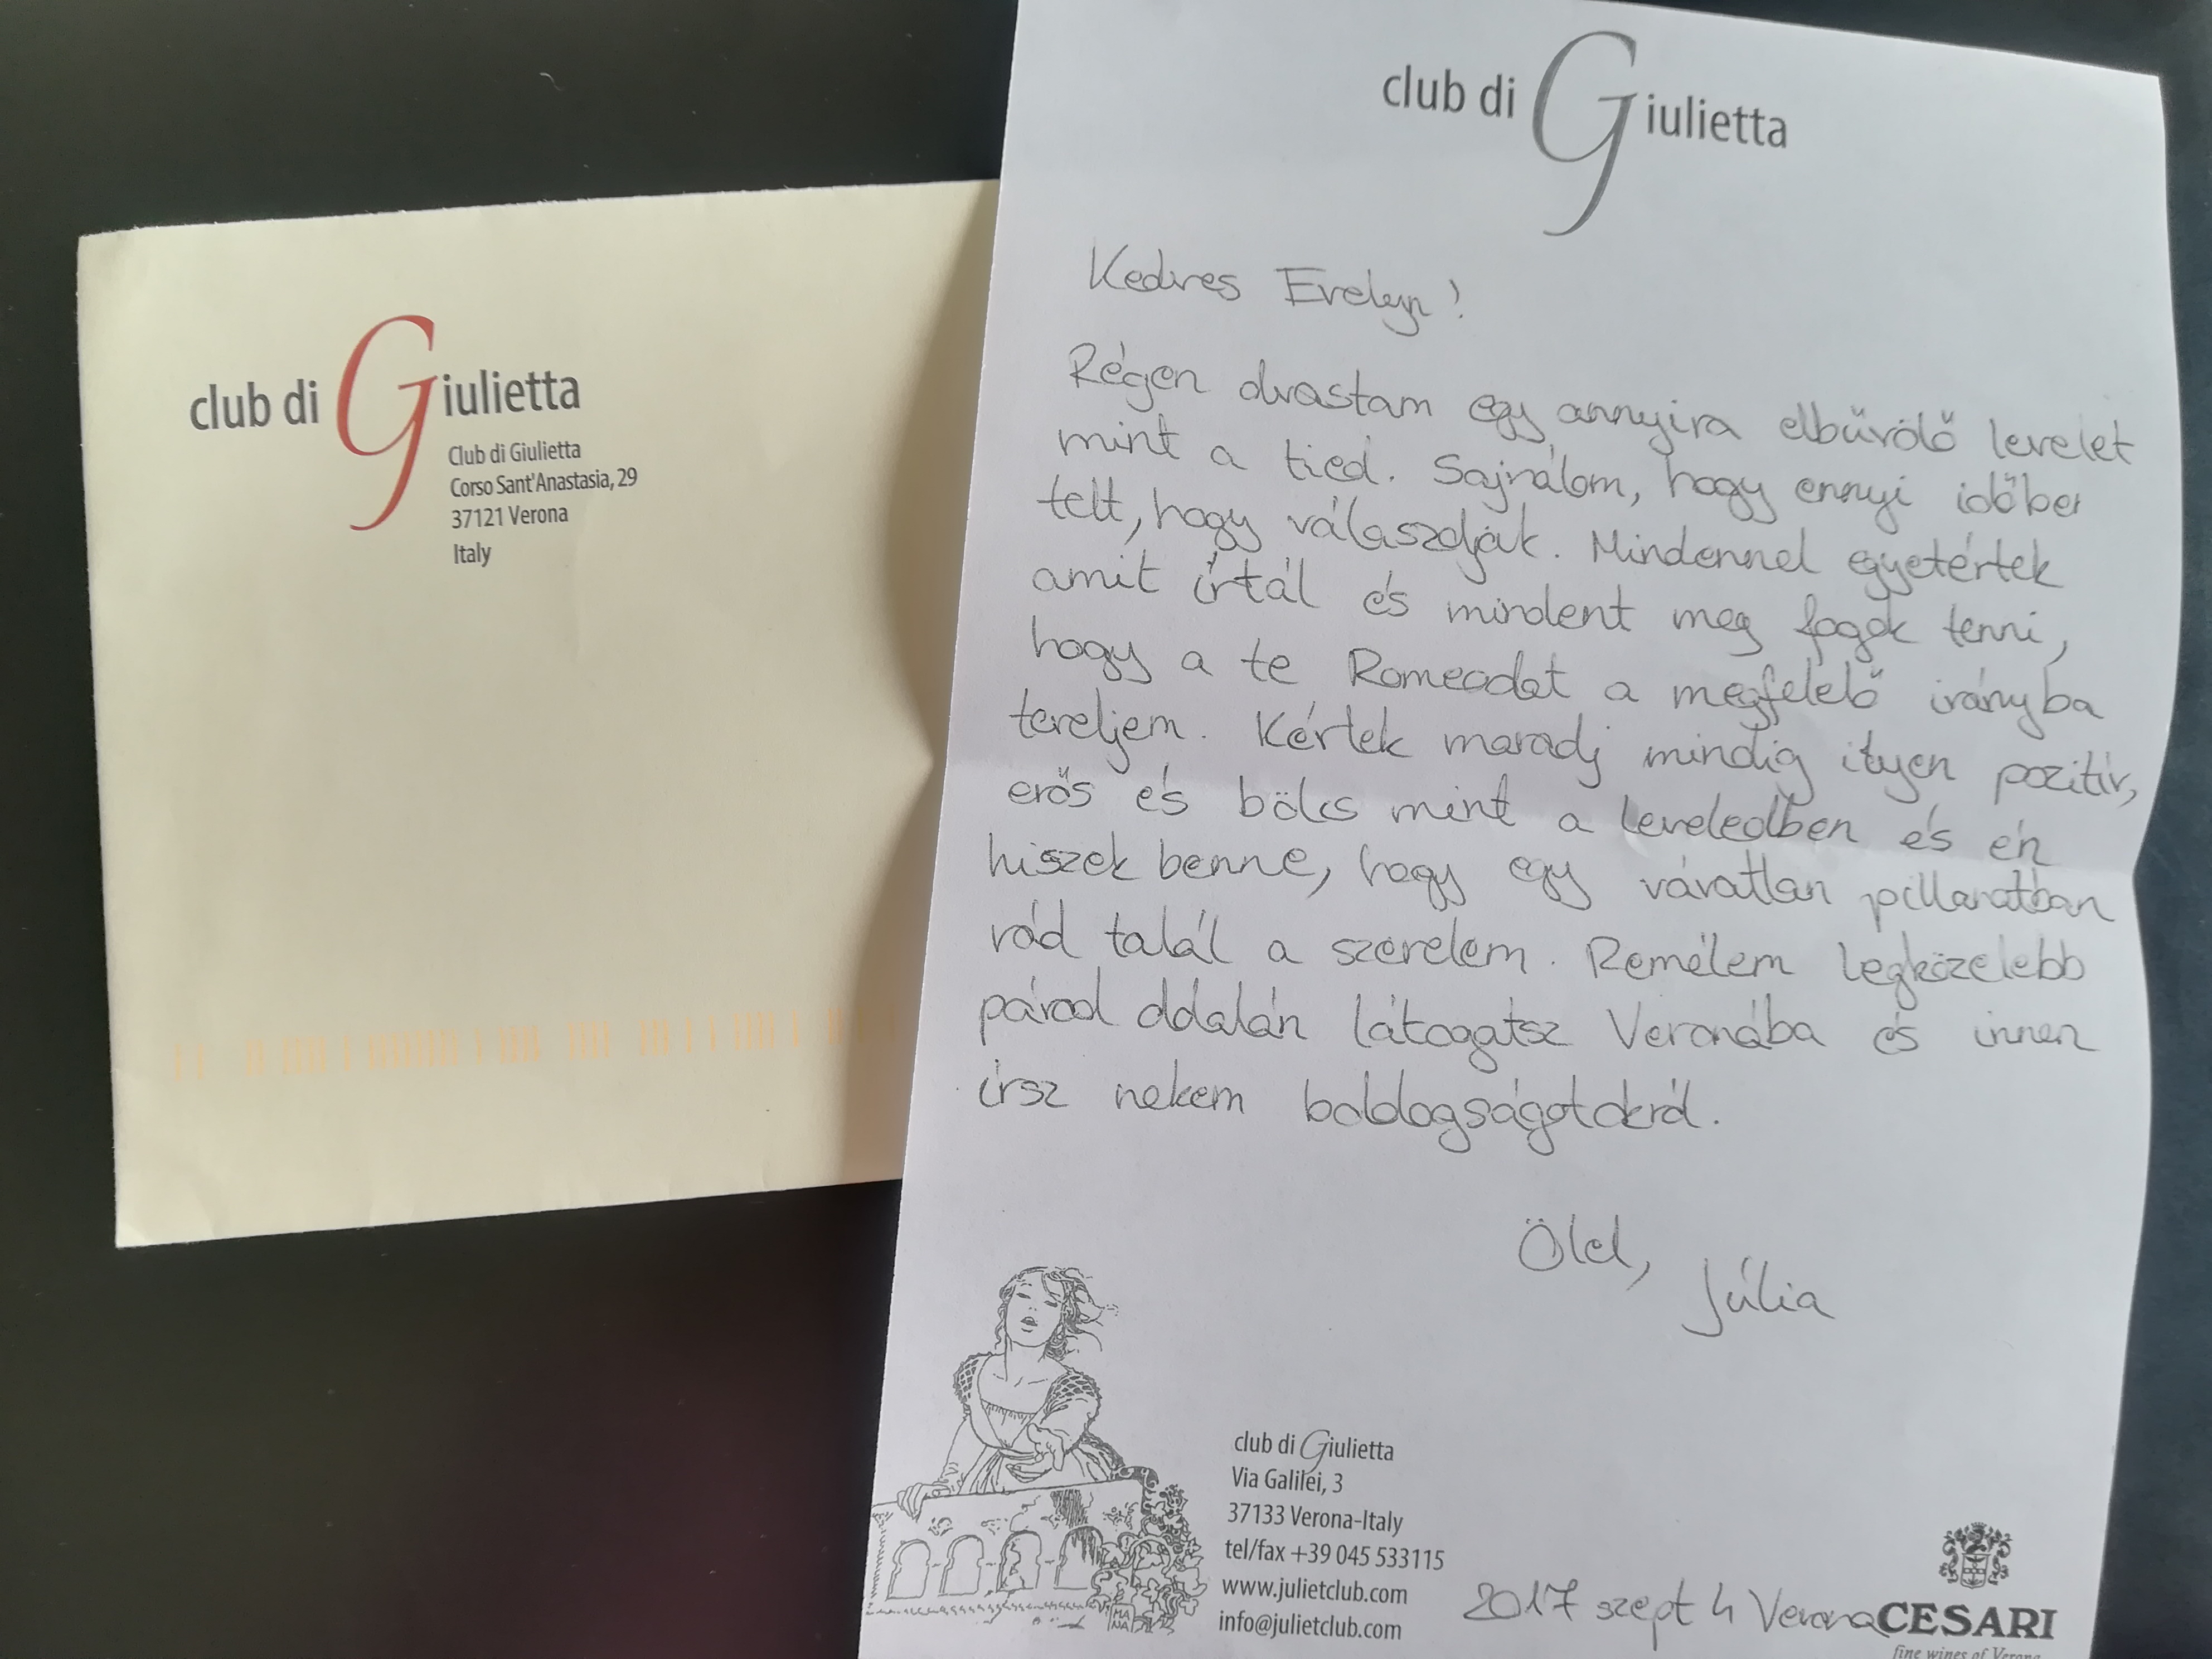 club di Giulietta
Club di Giulietta
Corso Sant'Anastasia, 29
37121 Verona
Italy
club di Giulietta
Kedves Evelyn!
Régen olvastam egy annyira elbűvölő levelet
mint a tied. Sajnálom, hogy ennyi időbe
telt, hogy válaszoljak. Mindennel egyetértek
amit írtál és mindent meg fogok tenni,
hogy a te Romeodat a megfelelő irányba
tereljem. Kértek maradj mindig ilyen pozitív,
erős és bölcs mint a leveledben és én
hiszek benne, hogy egy váratlan pillanatban
rád talál a szerelem. Remélem legközelebb
párod oldalán látogatsz Veronába és innen
írsz nekem boldogságotokról.
Ölel,
Júlia
club di Giulietta
Via Galilei, 3
37133 Verona-Italy
tel/fax +39 045 533115
www.julietclub.com
info@julietclub.com
2017 szept 4 Verona
CESARI
fine wines of Verona
MA
NA